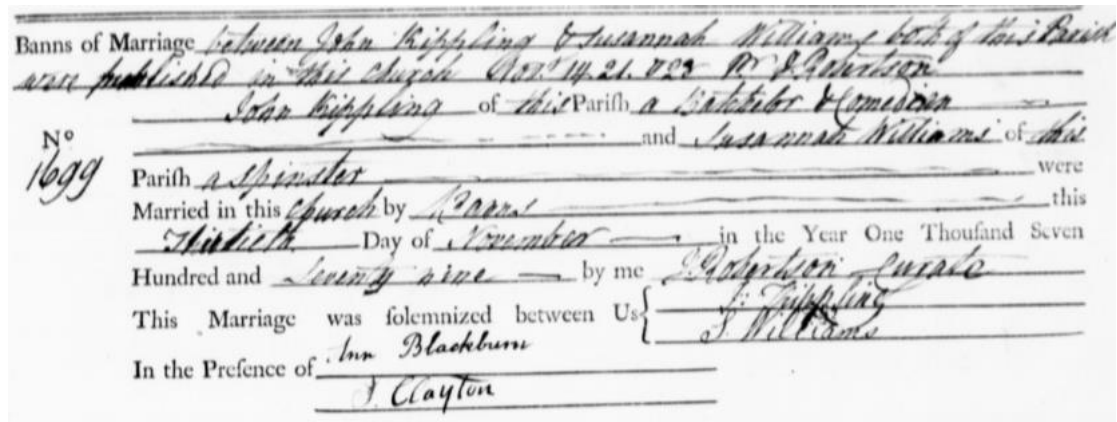 Banns of Marriage between John Kippling & Susannah Williams both of this Parish
were published in this Church Novr 14. 21. & 28 Pr J Robertson
John Kippling of this Pariſh a Batchelor & Comedian
Nº and Susannah Williams of this
1699 Pariſh a Spinster were
Married in this Church by Banns this
Thirtieth Day of November in the Year One Thouſand Seven
Hundred and Seventy nine by me J Robertson Curate
This Marriage was ſolemnized between Us { J: Kippling
S. Williams
In the Preſence of Ann Blackburn
J. Clayton